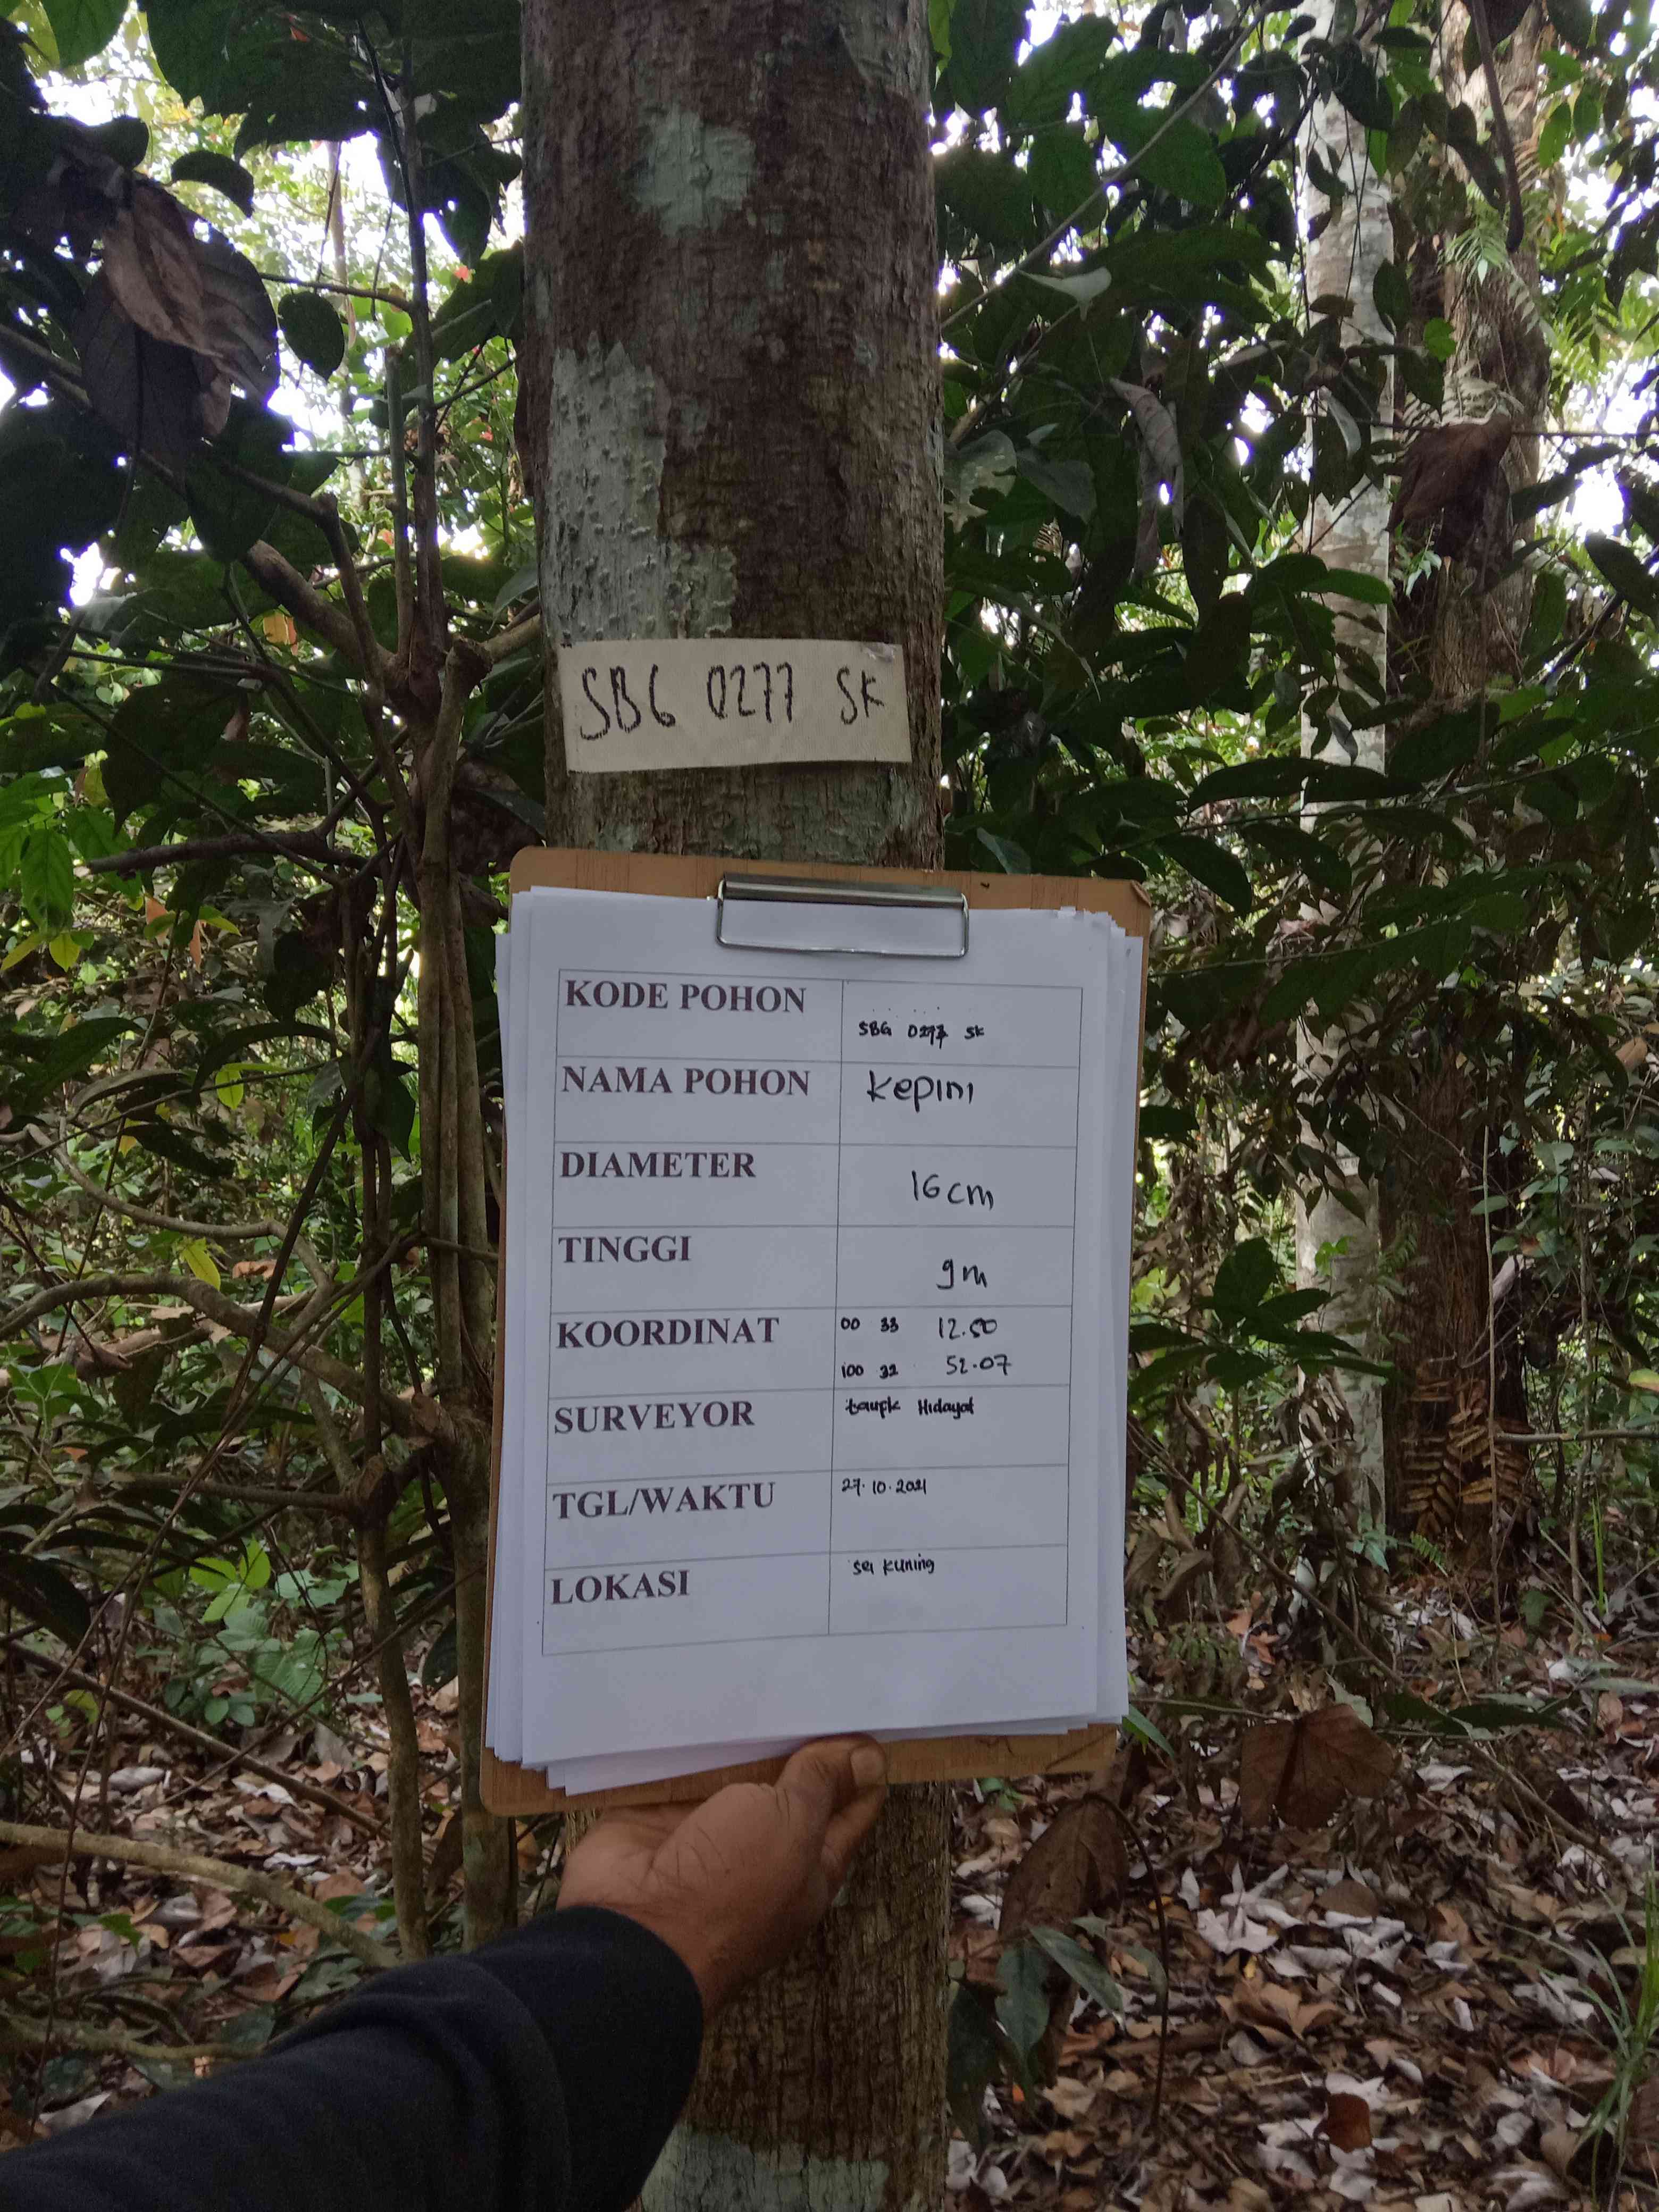 SBG 0277 SK
KODE POHON
SBG 0277 SK
NAMA POHON
Kepini
DIAMETER
16 cm
TINGGI
9 m
KOORDINAT
00 33 12.50
100 32 52.07
SURVEYOR
taufik Hidayat
TGL/WAKTU
27.10.2021
LOKASI
sei kuning